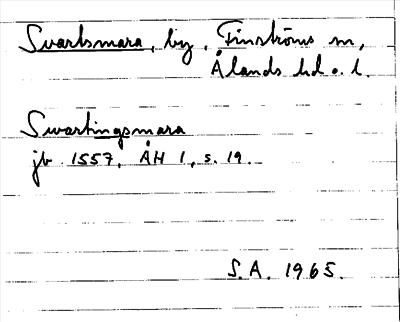 Svartsmara, by, Finströms sn,
Ålands hd o. l.
Swartingsmara
jb 1557, ÅH 1, s. 19.
S.A. 1965.